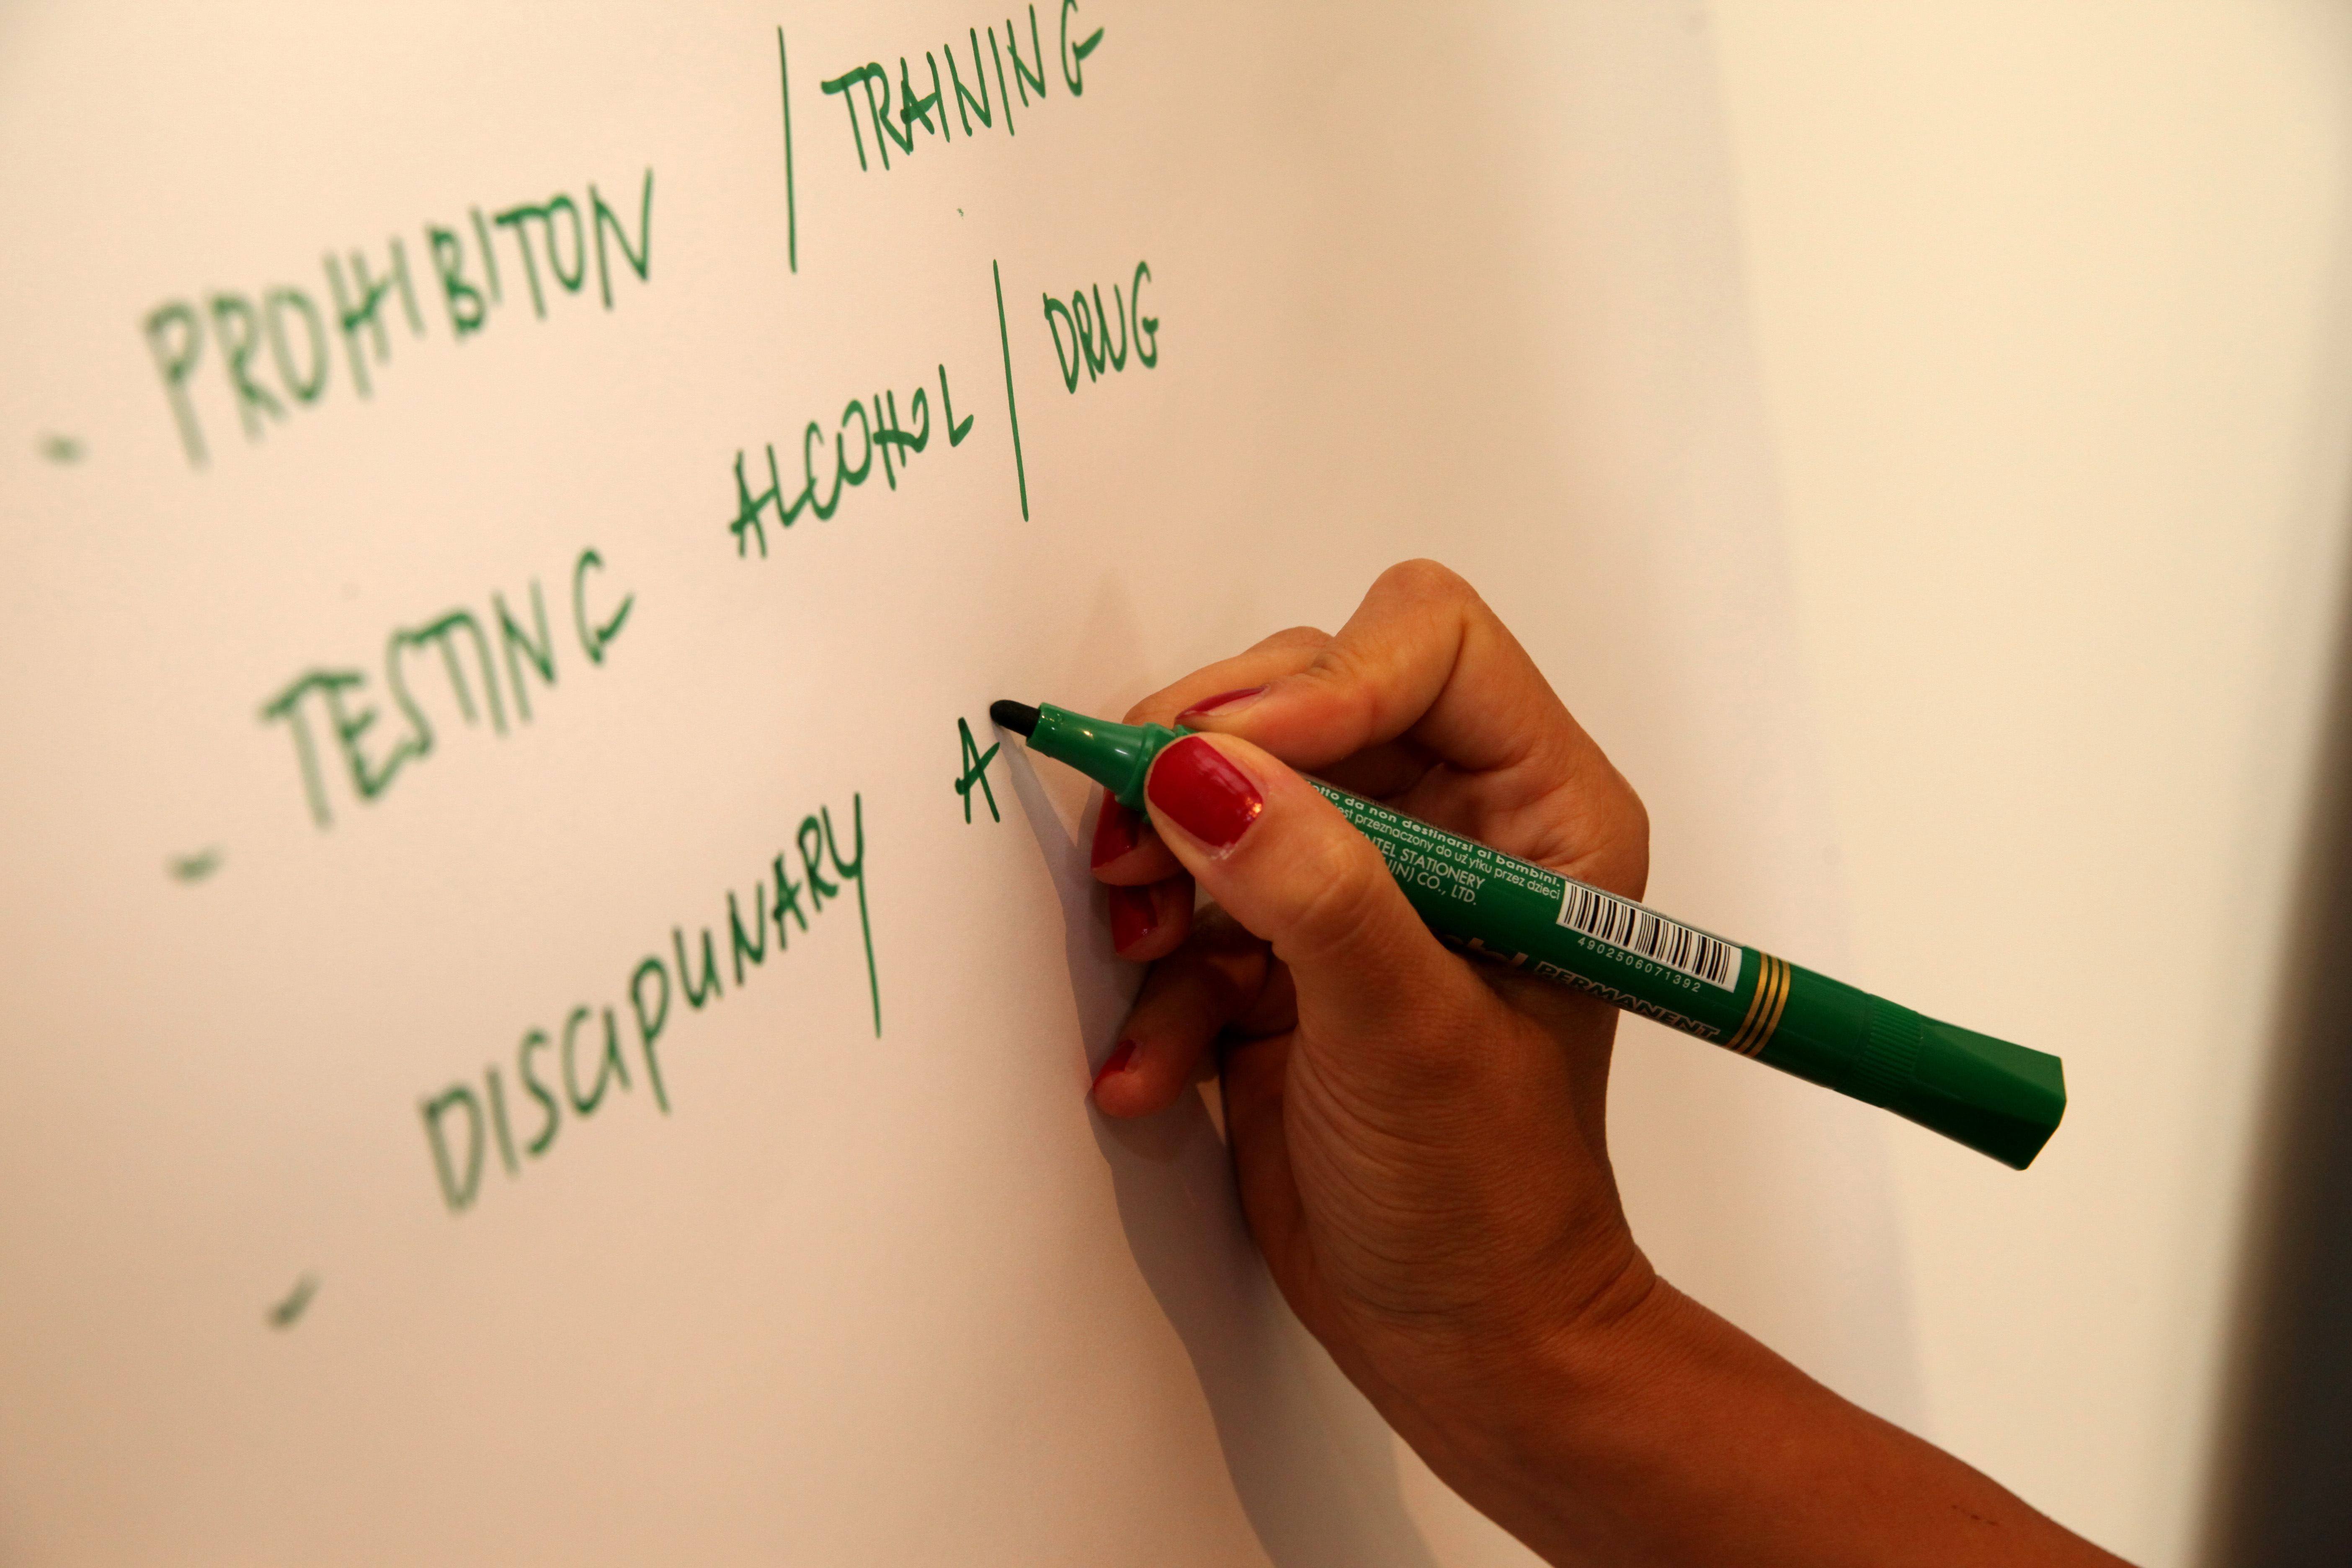 - PROHIBITON / TRAINING
- TESTING ALCOHOL / DRUG
- DISCIPLINARY A
otto da non destinarsi ai bambini.
jest przeznaczony do użytku przez dzieci
NTEL STATIONERY
CO., LTD.
4902506071392
PERMANENT